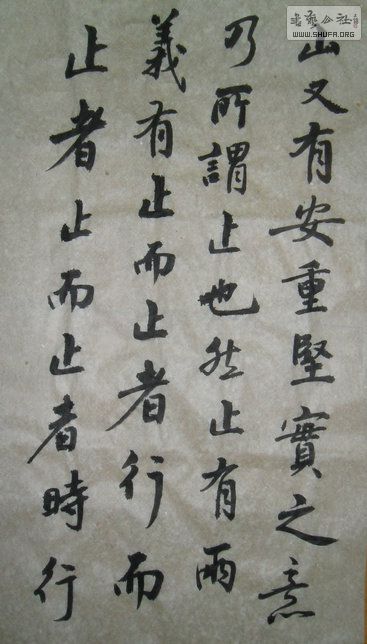 山又有安重堅實之意
乃所謂止也然止有兩
義有止而止者行而
止者止而止者時行
書藝公社
WWW.SHUFA.ORG